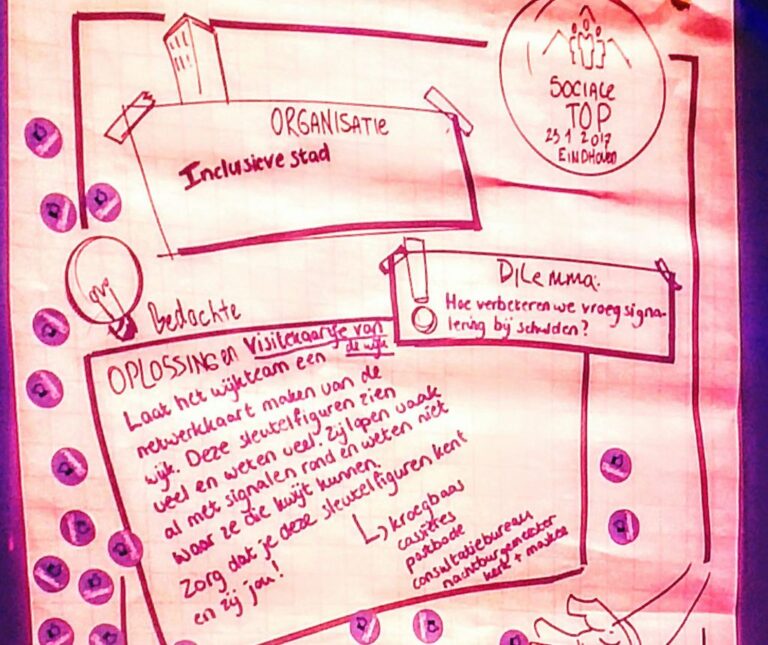 SOCIALE
TOP
23 1 2017
EINDHOVEN
ORGANISATIE
Inclusieve stad
Dilemma:
Hoe verbeteren we vroegsigna-
lering bij schulden?
Bedachte
OPLOSSINGEN Visitekaartje van
de wijk
Laat het wijkteam een
netwerkkaart maken van de
wijk. Deze sleutelfiguren zien
veel en weten veel. Zij lopen vaak
al met signalen rond en weten niet
waar ze die kwijt kunnen.
Zorg dat je deze sleutelfiguren kent
en zij jou!
kroegbaas
casières
postbode
consultatiebureau
nachtburgemeester
kerk + moskee